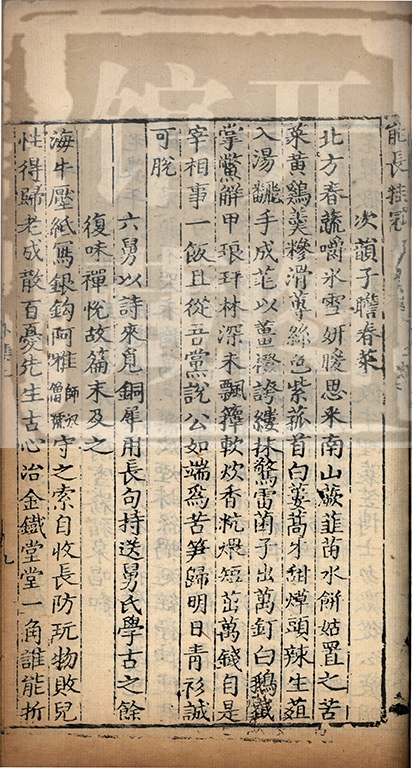 次韻子瞻春菜
北方春蔬嚼氷雪妍暖思采南山蕨韮苗水餅姑置之苦
菜黄鷄羹糝滑蓴絲色紫菰首白蔞蒿牙甜蔊頭辣生葅
入湯翻手成芼以薑橙誇縷抹驚雷菌子出萬釘白鵝截
掌鱉解甲琅玕林深未飄籜軟炊香秔煨短茁萬錢自是
宰相事一飯且從吾黨說公如端爲苦笋歸明日青衫誠
可脫
六舅以詩來覓銅犀用長句持送舅氏學古之餘
復味禪悅故篇末及之
海牛壓紙寫銀鈎阿雅守之索自收長防玩物敗兒
性得歸老成散百憂先生古心冶金鐵堂堂一角誰能折
館